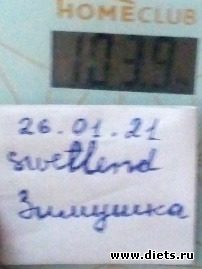 HOMECLUB
103.9
26.01.21
swetlend
Зимушка
www.diets.ru